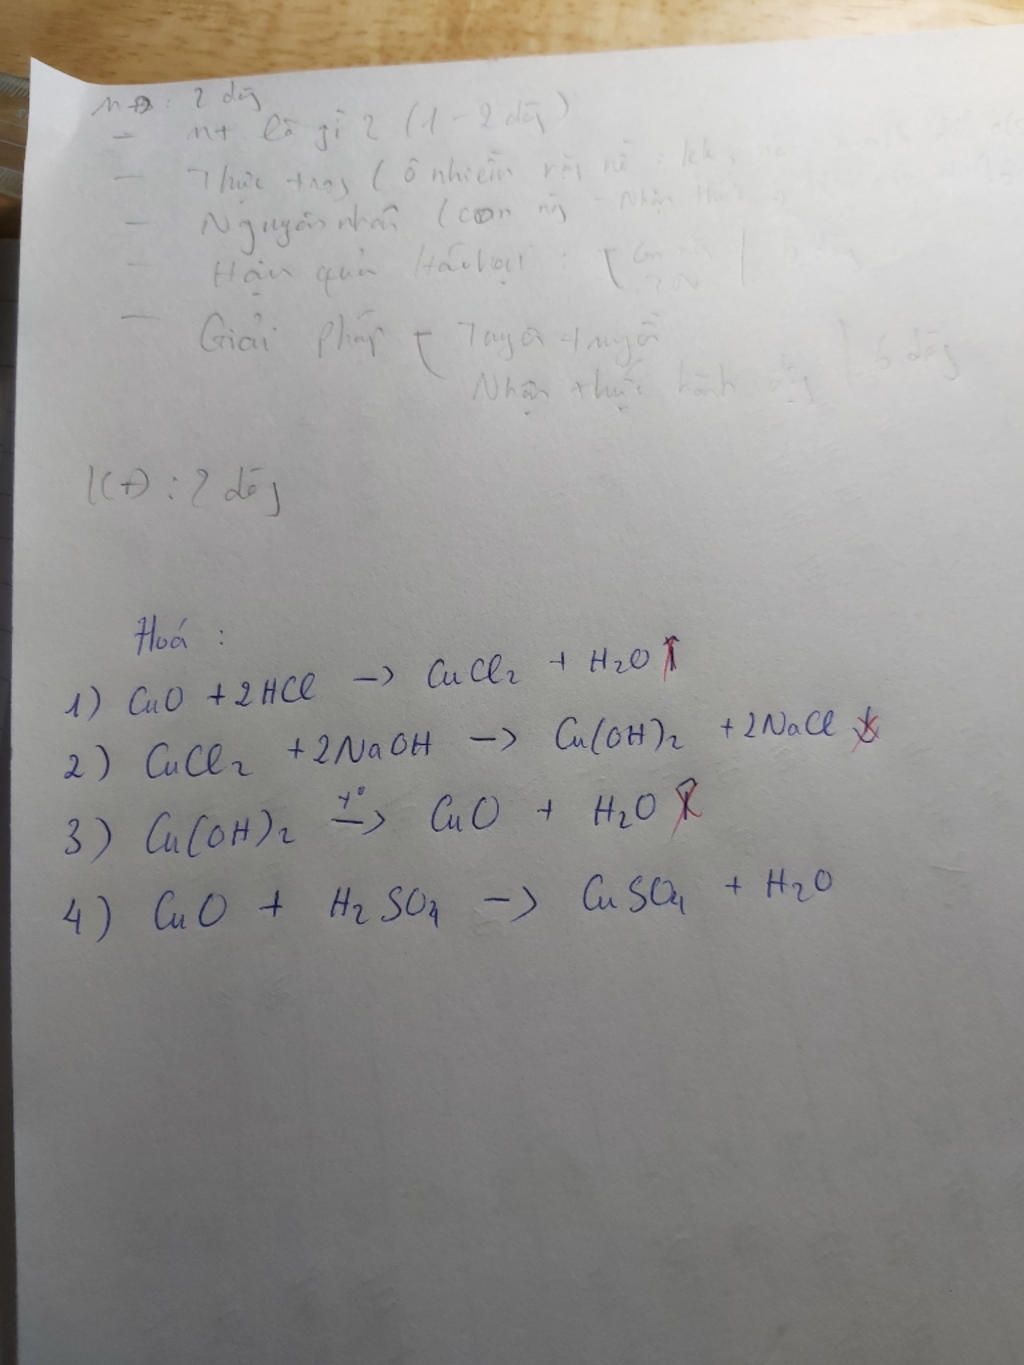 MĐ : 2 dòg
- MT là gì ? (1 - 2 dòg)
- Thực trạg ( ô nhiễm rác
- Nguyên nhân (con ng - Nhận thức
- Hậu quả tác hại : [
- Giải pháp [ Tuyên truyền
Nhận thức hành độg 6 dòg
KĐ : 2 dòg
Hoá :
1) CuO + 2HCl -> CuCl₂ + H₂O ↑
2) CuCl₂ + 2NaOH -> Cu(OH)₂ + 2NaCl ↓
3) Cu(OH)₂ t° -> CuO + H₂O ↑
4) CuO + H₂SO₄ -> CuSO₄ + H₂O